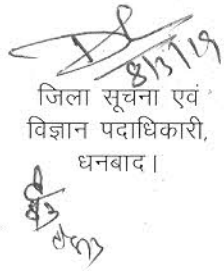 8/3/19
जिला सूचना एवं
विज्ञान पदाधिकारी,
धनबाद।